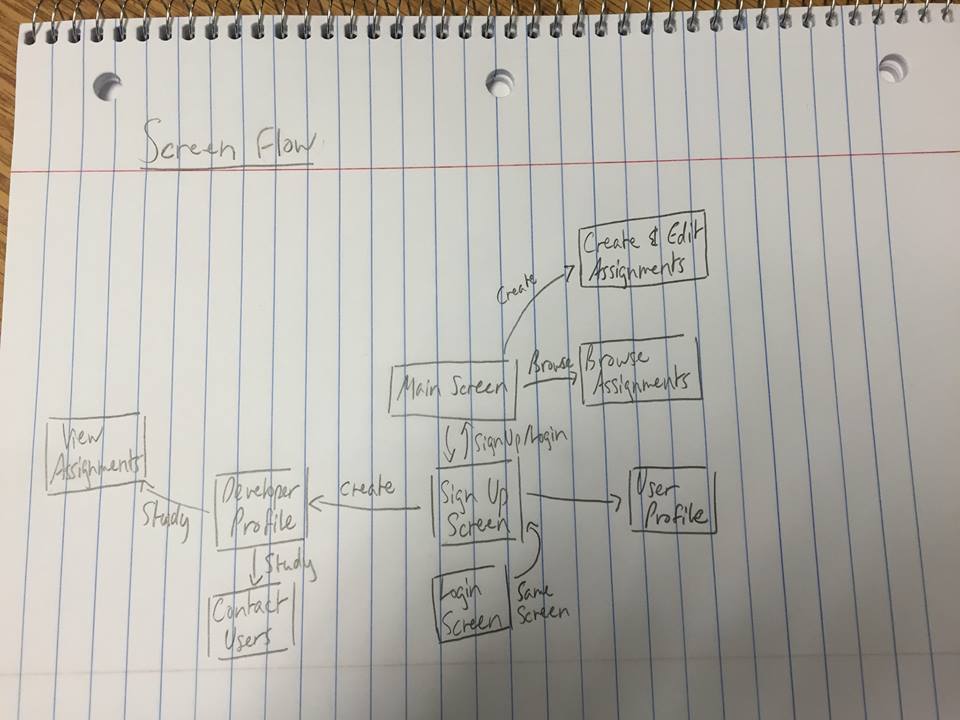 Screen Flow
Create & Edit
Assignments
Create
Main Screen
Browse
Browse
Assignments
Sign Up/Login
View
Assignments
Study
Developer
Profile
Create
Sign Up
Screen
User
Profile
Study
Contact
Users
Login
Screen
Same
Screen